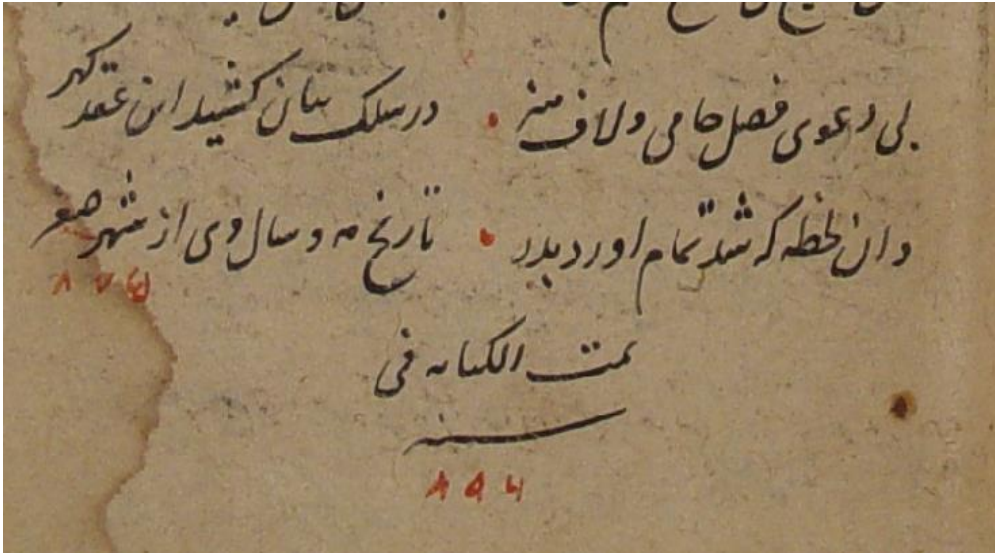 بی دعوی فضل جامی و لاف هنر • در سلک بیان کشید این عقد گهر
وان لحظه که شد تمام اورد بدر • تاریخ مه و سال وی از شهر صفر
٨٧۵
تمت الکتابه فی
سنه